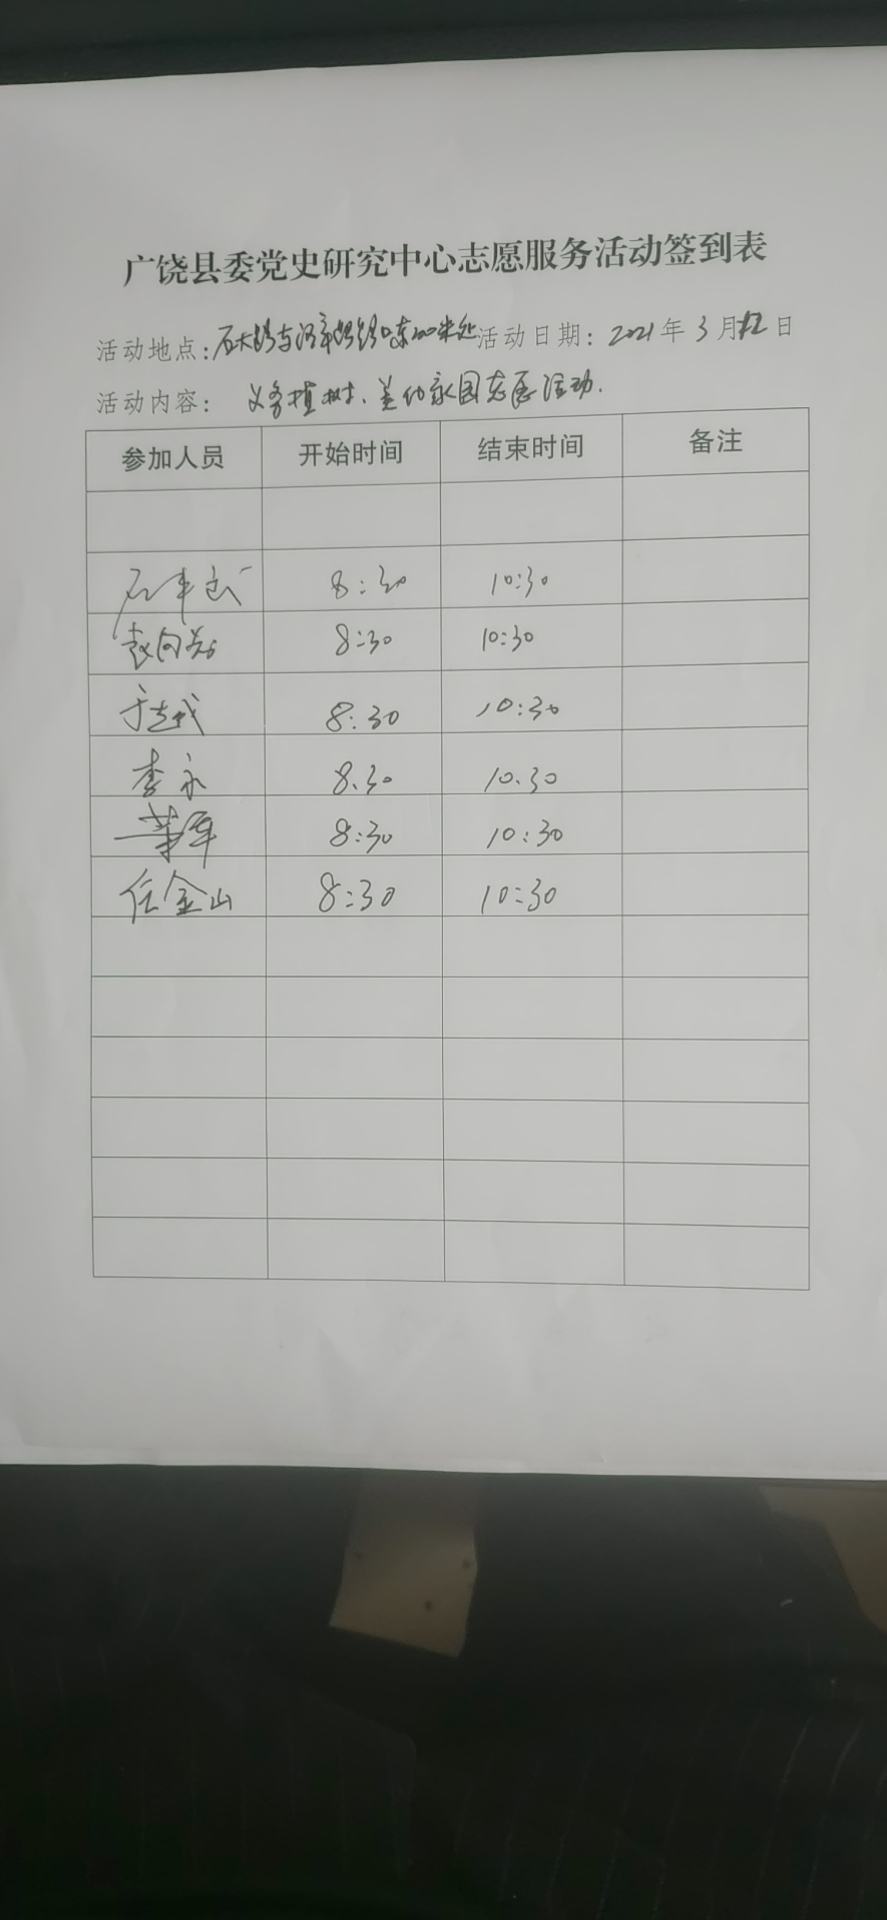 广饶县委党史研究中心志愿服务活动签到表
活动地点: 活动日期: 2021年3月12日
活动内容: 义务植树、美化家园志愿活动.
参加人员 开始时间 结束时间 备注
8:30 10:30
8:30 10:30
8:30 10:30
李永 8.30 10.30
8:30 10:30
任金山 8:30 10:30